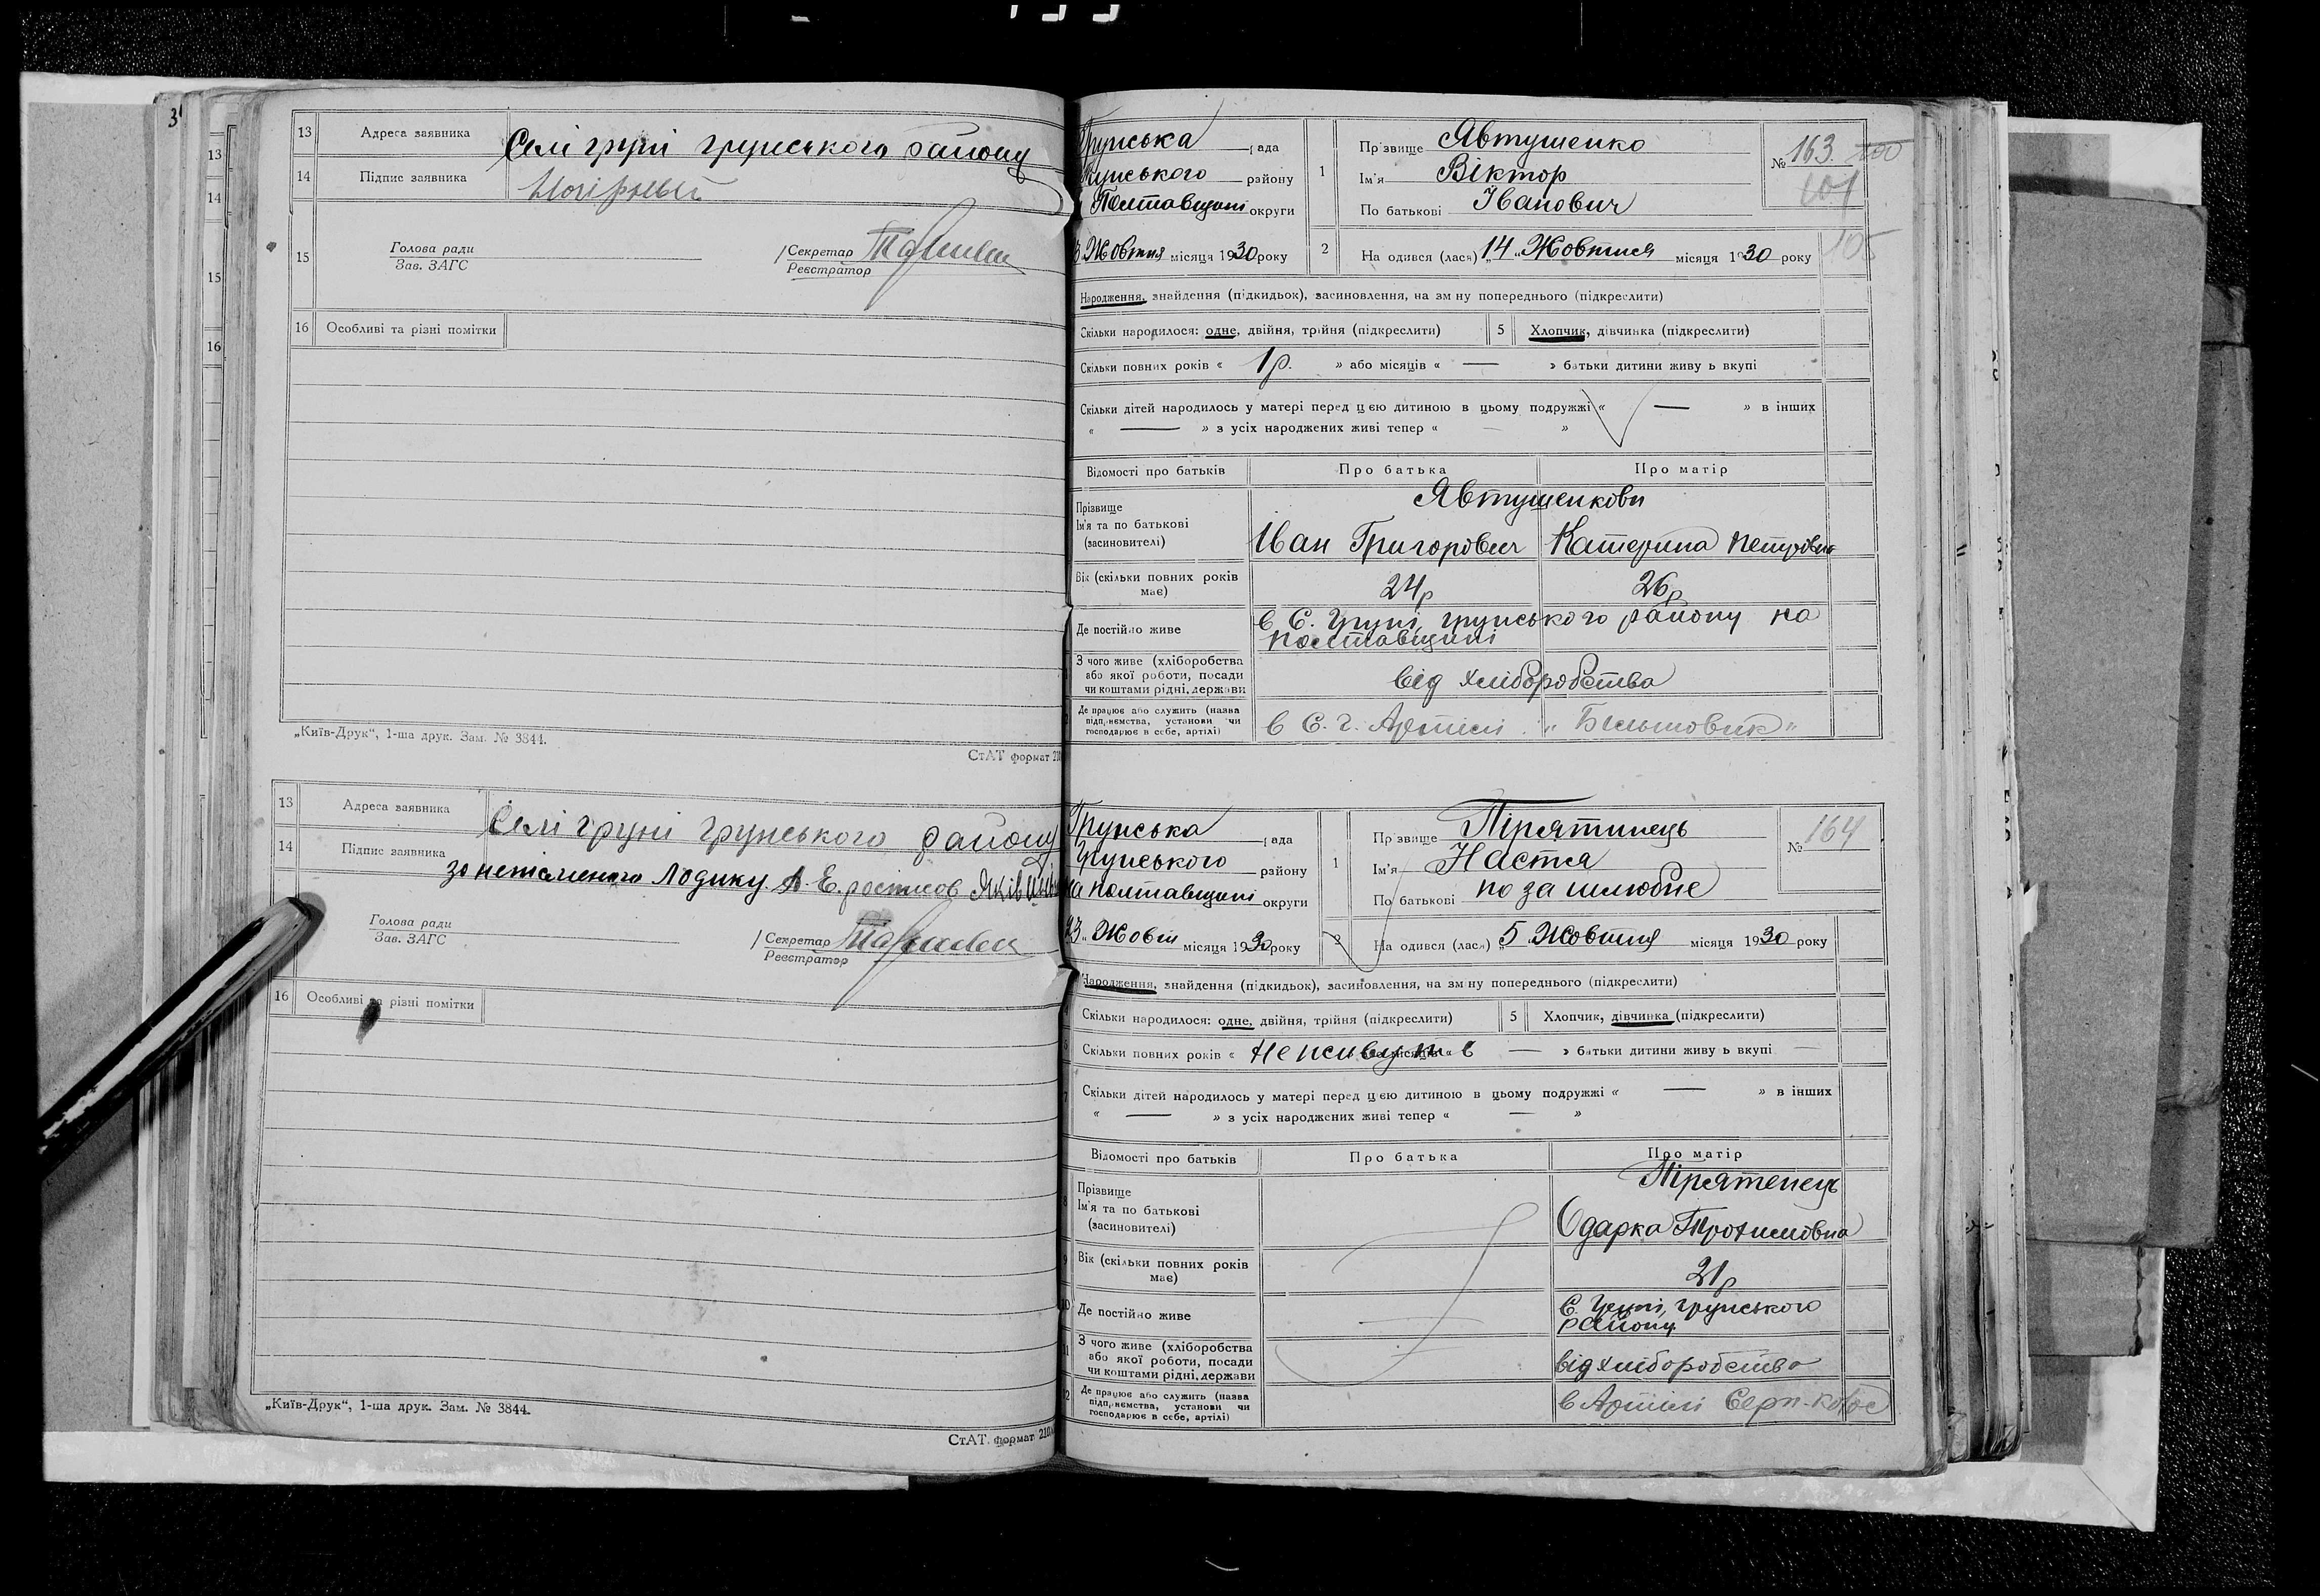 13 Адреса заявника Селі груні грунського району
14 Підпис заявника
15 Голова ради
Зав. ЗАГС
Секретар
Реєстратор
16 Особливі та різні помітки
„Київ-Друк“, 1-ша друк. Зам. № 3844.
СтАТ формат 210
13 Адреса заявника Селі груні грунського району
14 Підпис заявника
за неписьменого Лодику А. Е. росписов Яків
Голова ради
Зав. ЗАГС
Секретар
Реєстратор
16 Особливі та різні помітки
„Київ-Друк“, 1-ша друк. Зам. № 3844.
СтАТ. формат 210
3
13
14
15
16
Грунська рада
грунського району
Полтавщині округи
3 Жовтня місяця 1930 року
1 Прізвище Явтушенко
Ім'я Віктор
По батькові Іванович
№ 163. 100
101
105
2 На одився (лася) „14„ Жовтня місяця 1930 року
Народження, знайдення (підкидьок), засиновлення, на зміну попереднього (підкреслити)
Скільки народилося: одне, двійня, трійня (підкреслити) 5 Хлопчик, дівчинка (підкреслити)
Скільки повних років « 1 р. » або місяців « — » батьки дитини живу ь вкупі
Скільки дітей народилось у матері перед цією дитиною в цьому подружжі « — » в інших
« — » з усіх народжених живі тепер « — »
Відомості про батьків Про батька Про матір
Прізвище
Ім'я та по батькові
(засиновителі)
Явтушенкови
Іван Григорович Катерина Петрівна
Вік (скільки повних років має) 24р 26р
Де постійно живе в С. Груні, грунського району на
полтавщині
З чого живе (хліборобства
або якої роботи, посади
чи коштами рідні, держави
від хліборобства
Де працює або служить (назва
підприємства, установи чи
господарює в себе, артілі)
в С. г. Артілі „Більшовик“
Грунська рада
Грунського району
на полтавщині округи
23 „Жовтн місяця 1930 року
1 Прізвище Пірятинець
Ім'я Настя
По батькові по за шлюбне
№ 164
2 На одився (лася) „5 Жовтня місяця 1930 року
Народження, знайдення (підкидьок), засиновлення, на зміну попереднього (підкреслити)
Скільки народилося: одне, двійня, трійня (підкреслити) 5 Хлопчик, дівчинка (підкреслити)
Скільки повних років « не живуть в — » батьки дитини живу ь вкупі —
7 Скільки дітей народилось у матері перед цією дитиною в цьому подружжі « — » в інших
« — » з усіх народжених живі тепер « — »
Відомості про батьків Про батька Про матір
8 Прізвище
Ім'я та по батькові
(засиновителі)
Пірятенець
Одарка Трохимовна
9 Вік (скільки повних років має) 21р
10 Де постійно живе С. Груні, грунського
району
З чого живе (хліборобства
або якої роботи, посади
чи коштами рідні, держави
від хліборобства
Де працює або служить (назва
підприємства, установи чи
господарює в себе, артілі)
в Артілі Серп-колос